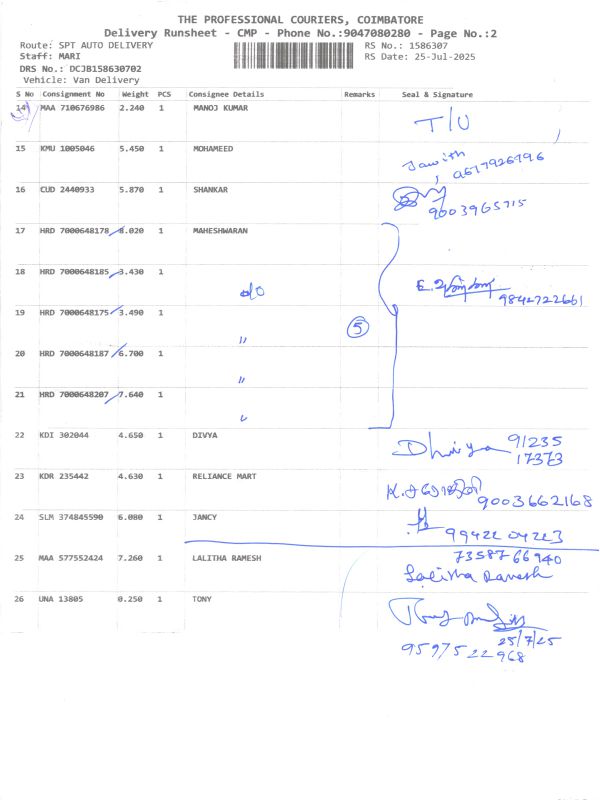 THE PROFESSIONAL COURIERS, COIMBATORE
Delivery Runsheet - CMP - Phone No.:9047080280 - Page No.:2
Route: SPT AUTO DELIVERY RS No.: 1586307
Staff: MARI RS Date: 25-Jul-2025
DRS No.: DCJB158630702
Vehicle: Van Delivery
S No Consignment No Weight PCS Consignee Details Remarks Seal & Signature
14 MAA 710676986 2.240 1 MANOJ KUMAR
T/U
15 KMU 1005046 5.450 1 MOHAMEED
Jawith
16 CUD 2440933 5.870 1 SHANKAR
9003965715
17 HRD 7000648178 8.020 1 MAHESHWARAN
18 HRD 7000648185 3.430 1
do
9842722661
19 HRD 7000648175 3.490 1
5
"
20 HRD 7000648187 6.700 1
"
21 HRD 7000648207 7.640 1
"
22 KDI 302044 4.650 1 DIVYA
Dhivya 91235
17373
23 KDR 235442 4.630 1 RELIANCE MART
9003662168
24 SLM 374845590 6.080 1 JANCY
9942204223
25 MAA 577552424 7.260 1 LALITHA RAMESH
7358766940
Lalitha Ramesh
26 UNA 13805 0.250 1 TONY
25/7/25
9597522968